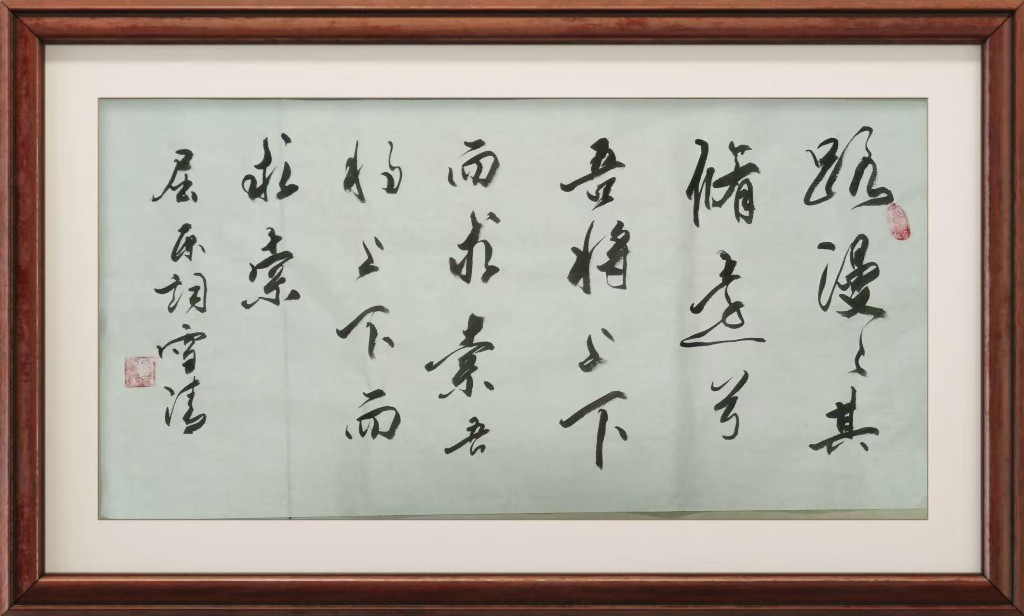 路漫〻其
脩远兮
吾将上下
而求索吾
将上下而
求索
屈原词雪清